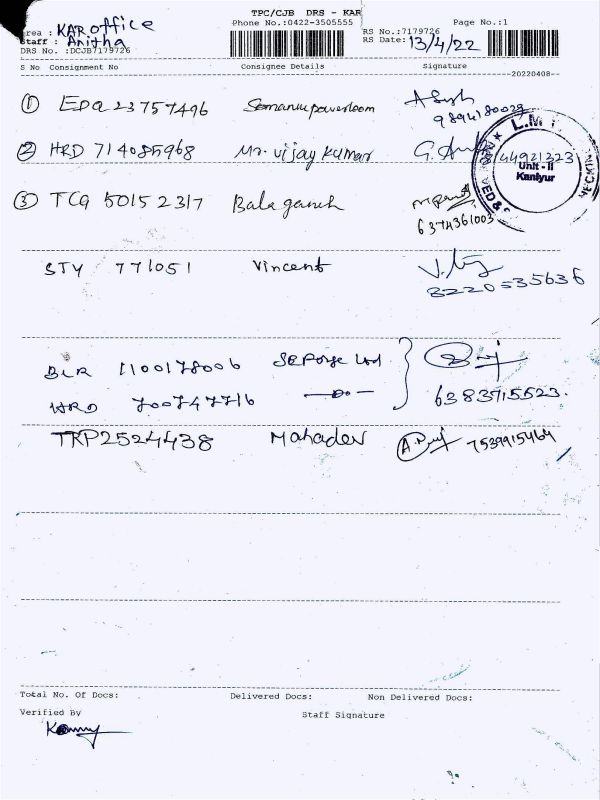 TPC/CJB DRS - KAR
Phone No.:0422-3505555 Page No.:1
Area : KAR office
Staff : Anitha
DRS No. :DCJB7179726
RS No.:7179726
RS Date: 13/4/22
S No Consignment No Consignee Details Signature
20220408
① EDA 23757496
② HRD 714085968 Mr. Vijay Kumar
L.M
Unit - II
Kaniyur
③ TCG 50152317 Bala ganesh
6374361003
STY 771051 Vincent
8220535636
BLR 1100178006
HRD 700747716 —Do—
6383715523.
TRP2524438 Mahadev 7539915464
Total No. Of Docs: Delivered Docs: Non Delivered Docs:
Verified By Staff Signature